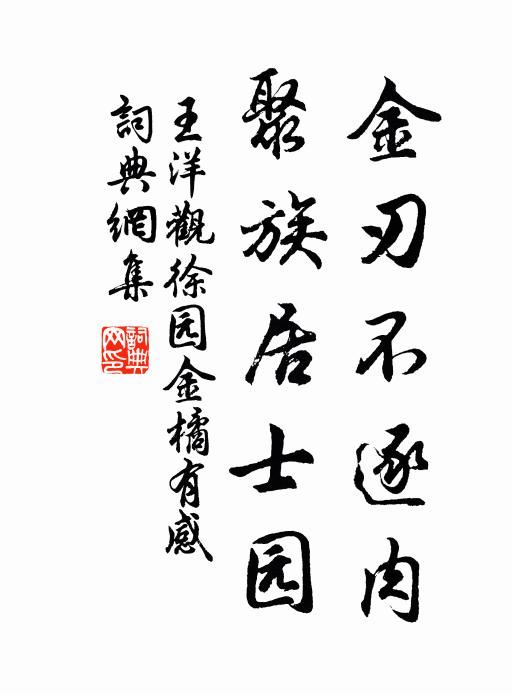 金刃不逐肉
聚族居士园
王洋觀徐园金橘有感
詞典網集
詞典網印